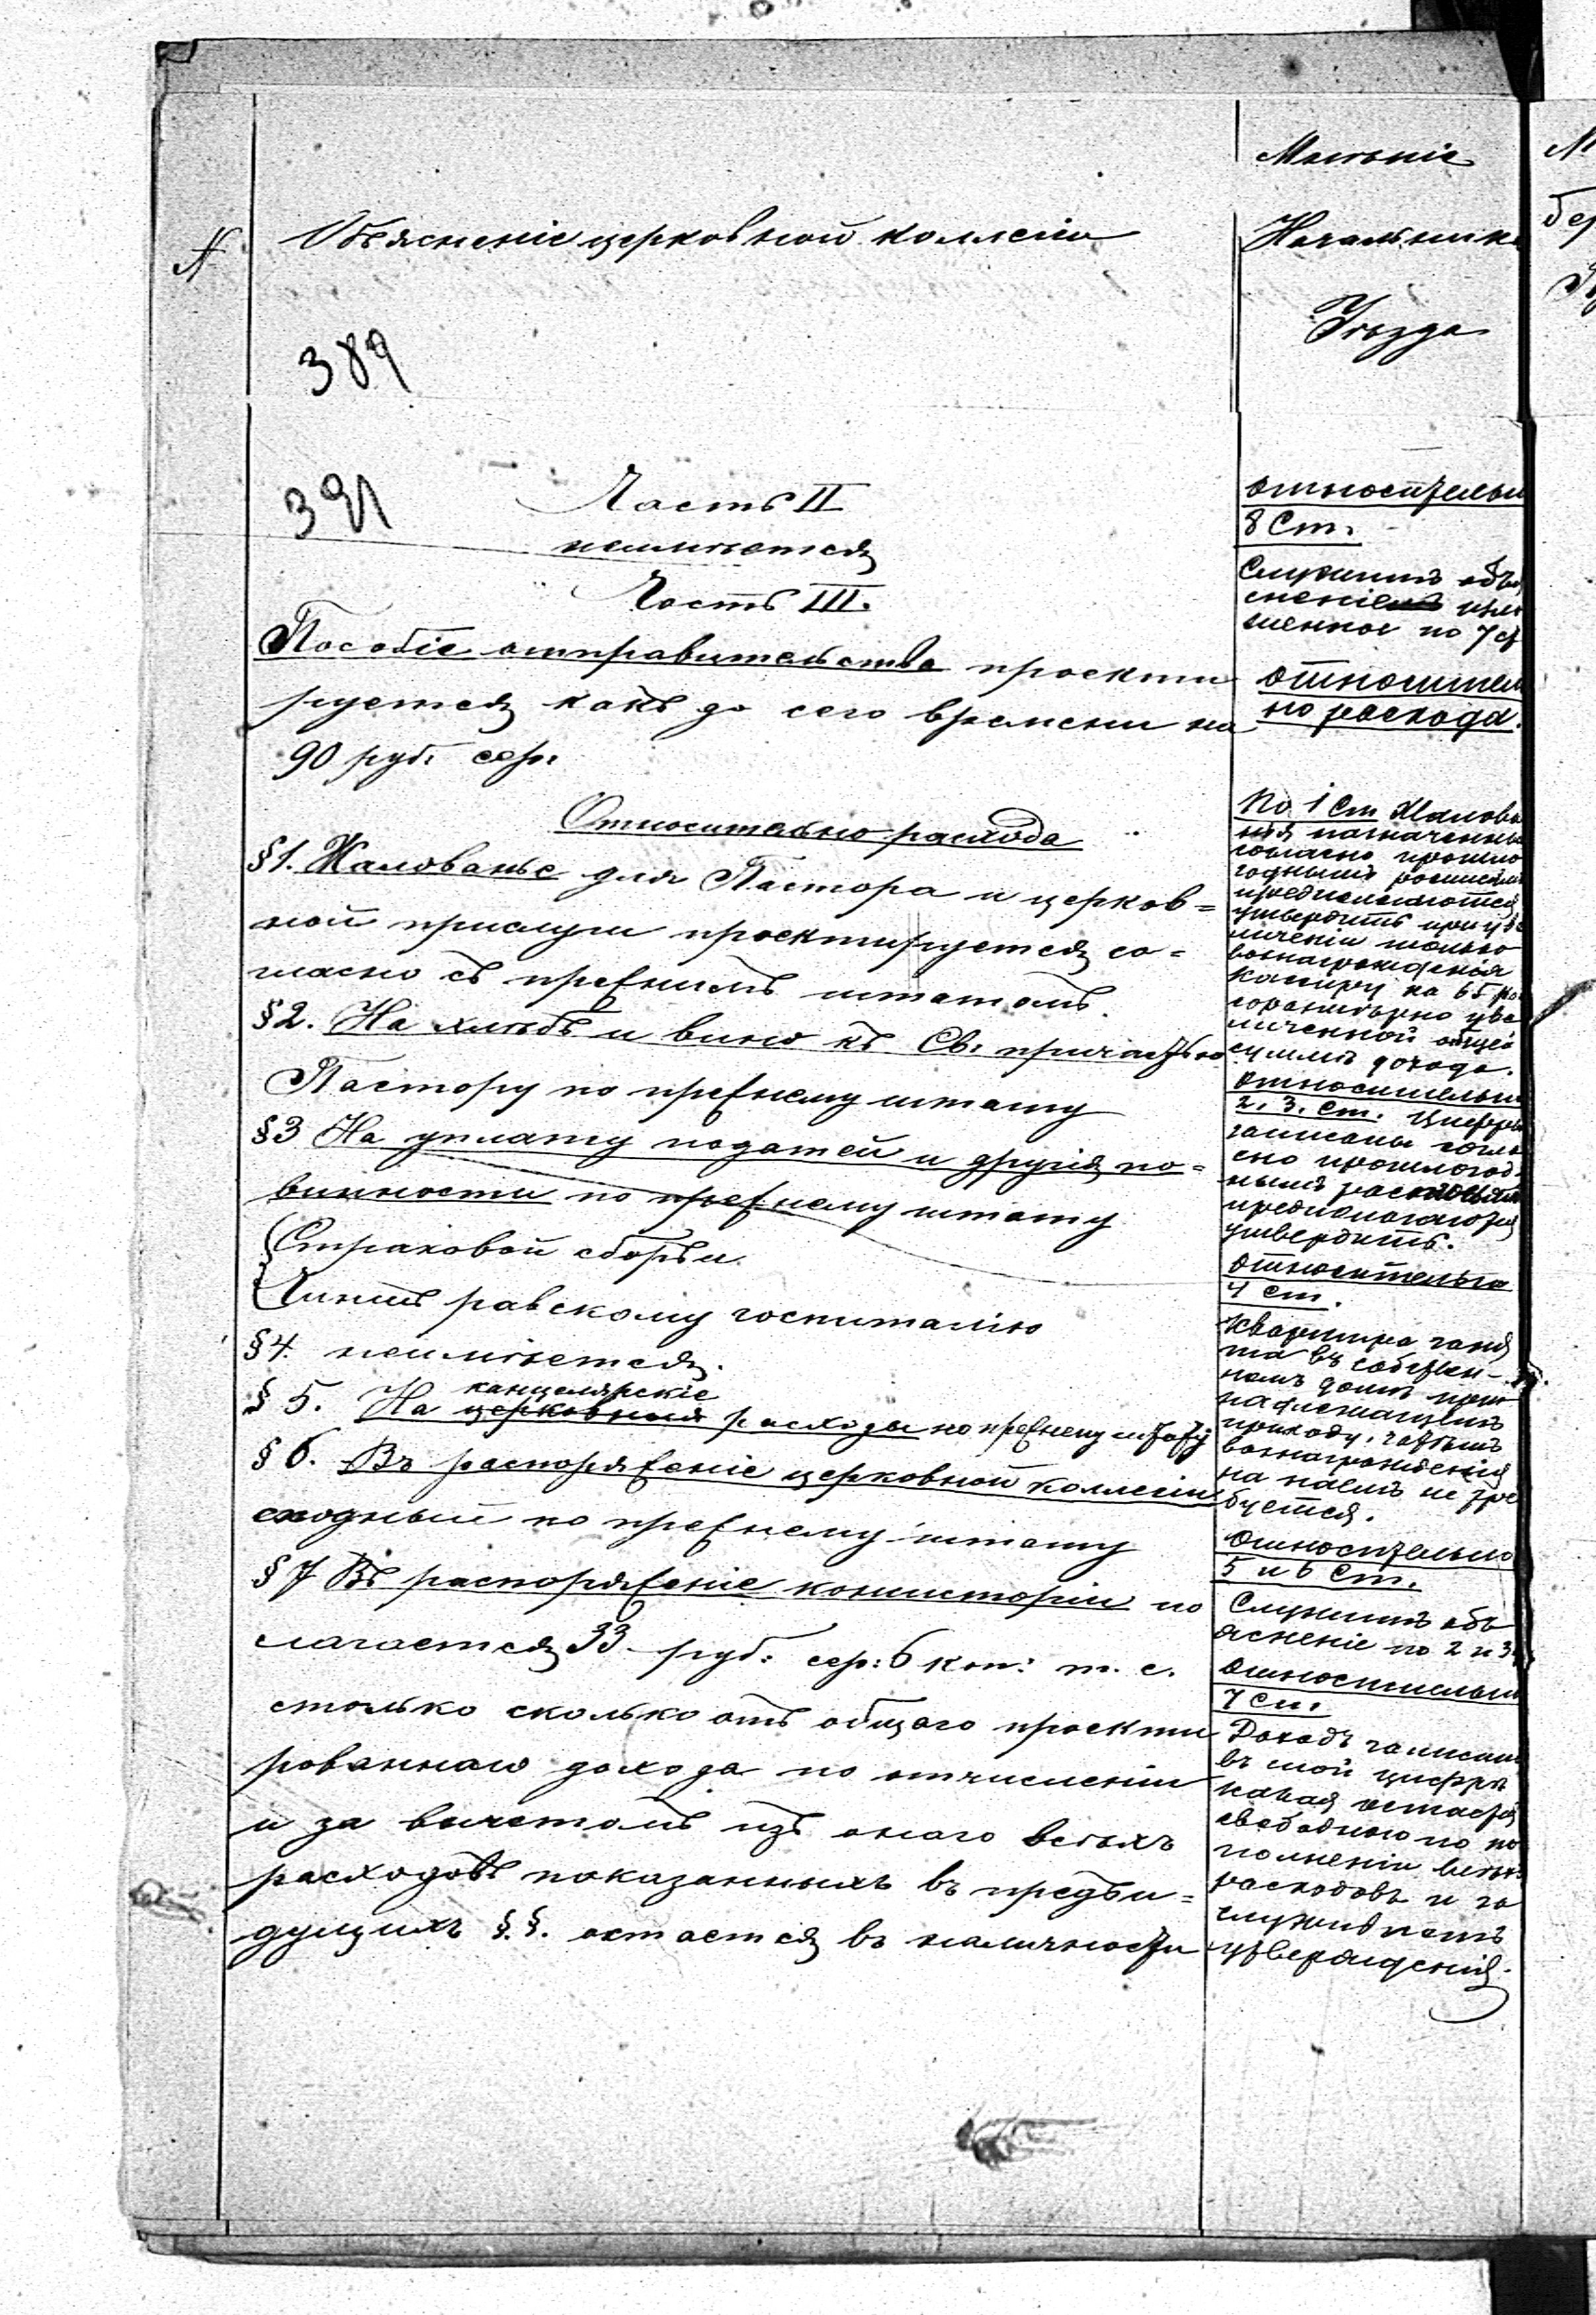 №
Объясненіе церковной коллегіи
389
391
Часть II
неимѣется
Часть III.
Пособіе отправительства проекти
руется какъ до сего времени на
90 руб: сер:
Относительно расхода
§1. Жалованье для Пастора и церков=
ной прислуги проектируется со=
гласно съ прежнимъ штатомъ.
§2. На хлѣбъ и вино къ Св: причастью
Пастору по прежнему штату
§3 На уплату податей и другія по=
винности по прежнему штату
Страховой сборъ и
равскому госпиталію
§4. неимѣется.
канцелярскіе
§5. На церковныя расходы по прежнему штату
§6. Въ распоряженіе церковной коллегіи
сходный по прежнему штату
§7 Въ распоряженіе консисторіи по
лагается 33 руб: сер: 6 коп: т. е.
столько сколько отъ общаго проекти
рованнаго дохода по отчисленіи
и за вычетомъ изъ онаго всѣхъ
расходовъ показанныхъ въ предъи=
дущихъ §.§. остается въ наличности
Мнѣніе
Начальника
Уѣзда
Относительн
8 Ст.
Служитъ объя
сненіе изло
женное по 7 ст
Относител
но расхода.
По 1 Ст Жалова
нія назначенны
согласно прошло
годнымъ росписям
предполагается
утвердить при уве
личеніи только
вознагражденія
Кассиру на 65
соразмѣрно уве
личенной общей
суммѣ дохода.
Относительн
2. 3. Ст. Цифры
записаны согла
сно прошлогод
нымъ
предполагается
утвердить.
Относительно
4 Ст.
Квартира заня
та въ собствен-
номъ домѣ при
надлежащемъ
приходу,
вознагражденія
на наемъ не тре
буется.
Относительно
5 и 6 Ст.
Служитъ объ
ясненіе по 2 и 3
Относительн
7 Ст.
Доходъ записан
въ той цифрѣ
какая остается
свободною по по
полненіи всѣхъ
расходовъ и за
служиваетъ
утвержденія.
М
бер